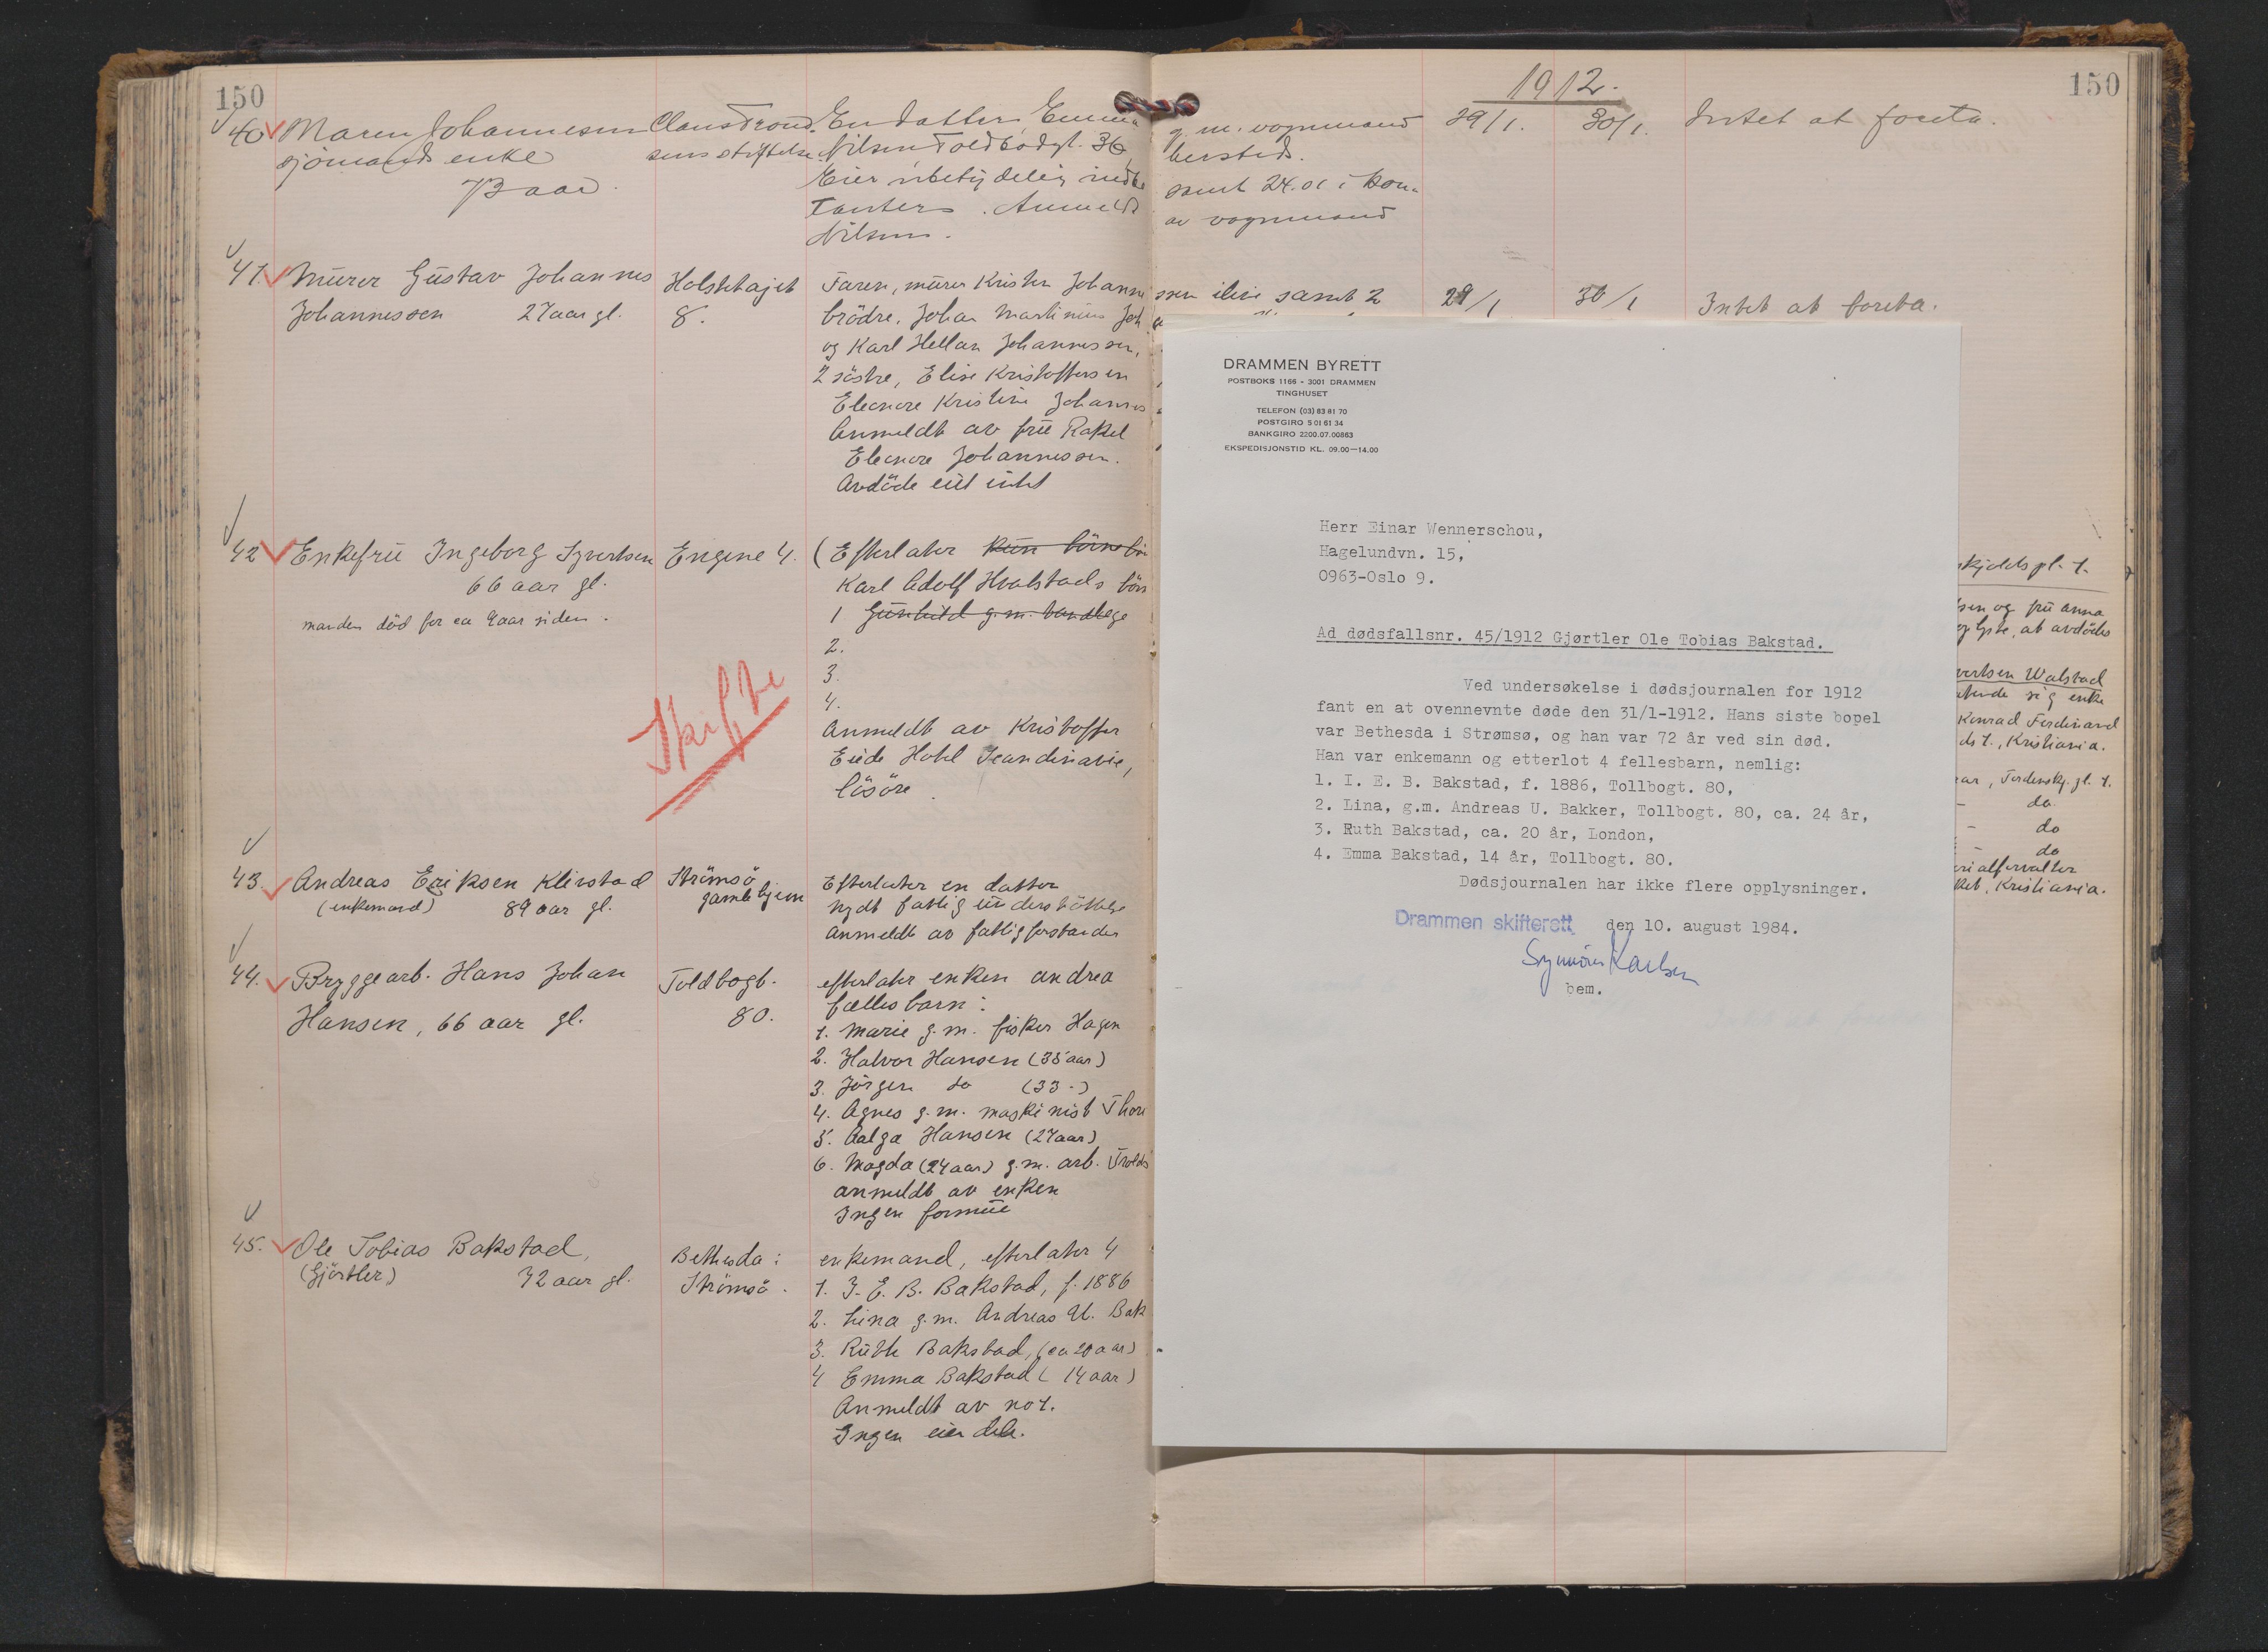 150
1912.
150
40 Maren Johannesen Claus Trond- En datter, Emma g.m. vognmand 29/1. 30/1. Intet at foreta.
sjömands enke sens stiftelse. Nilsen, Toldbodgt. 36
73 aar.
Eier ubetydelig indbo samt 24.01 i kon-
tanter. Anmeldt av vognmand
Nilsen.
41. Murer Gustav Johannes Holstehajet Faren, murer Kristen Johanne ssen ilive samt 2 29/1 30/1 Intet at foreta.
Johannessen 27 aar gl. 8. brödre, Johan Martinius Joh
og Karl Hellan Johannessen,
2 söstre, Elise Kristoffersen
Eleonore Kristine Johannes
Anmeldt av frü Rakel
Eleonore Johannessen.
Avdöde eiet intet
42 Enkefrü Ingeborg Syvertsen Engene 4. (Efterlater kün börnebö
66 aar gl. Karl Adolf Hvalstads börn
manden död for ca 9 aar siden. 1 Gunhild g.m. tandlege
2.
3.
4.
Skifte
Anmeldt av Kristoffer
Eiede Hotel Scandinavie,
lösöre.
43. Andreas Eriksen Klivstad Strömsö Efterlater en datter
(enkemand) 89 aar gl. gamlehjem Nydt fattigünderstöttelse
anmeldt av fattigforstander
44. Bryggearb. Hans Johan Toldbogt. efterlater enken Andrea
Hansen, 66 aar gl. 80. fællesbarn:
1. Marie g.m. fisker Hagen
2. Halvor Hansen (35 aar)
3. Jörgen do (33 -)
4. Agnes g.m. maskinist Thor
5. Aalga Hansen (27 aar)
6. Magda (24 aar) g.m. arb. Trolds
anmeldt av enken
Ingen formüe
45. Ole Tobias Bakstad, Bethesda i enkemand, efterlater 4
(Gjörtler) 72 aar gl. Strömsö. 1. I. E. B. Bakstad, f. 1886
2. Lina g.m. Andreas U. Bak
3. Rüth Bakstad, (ca 20 aar)
4 Emma Bakstad (14 aar)
Anmeldt av no 1.
Ingen eiendele.
DRAMMEN BYRETT
POSTBOKS 1166 • 3001 DRAMMEN
TINGHUSET
TELEFON (03) 83 81 70
POSTGIRO 5 01 61 34
BANKGIRO 2200.07.00863
EKSPEDISJONSTID KL. 09.00—14.00
Herr Einar Wennerschou,
Hagelundvn. 15,
0963-Oslo 9.
Ad dødsfallsnr. 45/1912 Gjørtler Ole Tobias Bakstad.
Ved undersøkelse i dødsjournalen for 1912
fant en at ovennevnte døde den 31/1-1912. Hans siste bopel
var Bethesda i Strømsø, og han var 72 år ved sin død.
Han var enkemann og etterlot 4 fellesbarn, nemlig:
1. I. E. B. Bakstad, f. 1886, Tollbogt. 80,
2. Lina, g.m. Andreas U. Bakker, Tollbogt. 80, ca. 24 år,
3. Ruth Bakstad, ca. 20 år, London,
4. Emma Bakstad, 14 år, Tollbogt. 80.
Dødsjournalen har ikke flere opplysninger.
Drammen skifterett den 10. august 1984.
Karlsen
bem.
skjoldspl. 1.
sen og frü Anna
oplyste, at avdödes
vertsen Walstad
sig enke
Konrad Ferdinand
ds 1., Kristiania.
aar, Tordenskj. gl. 1.
- do
- do
- do
erialforvalter
ket, Kristiania.